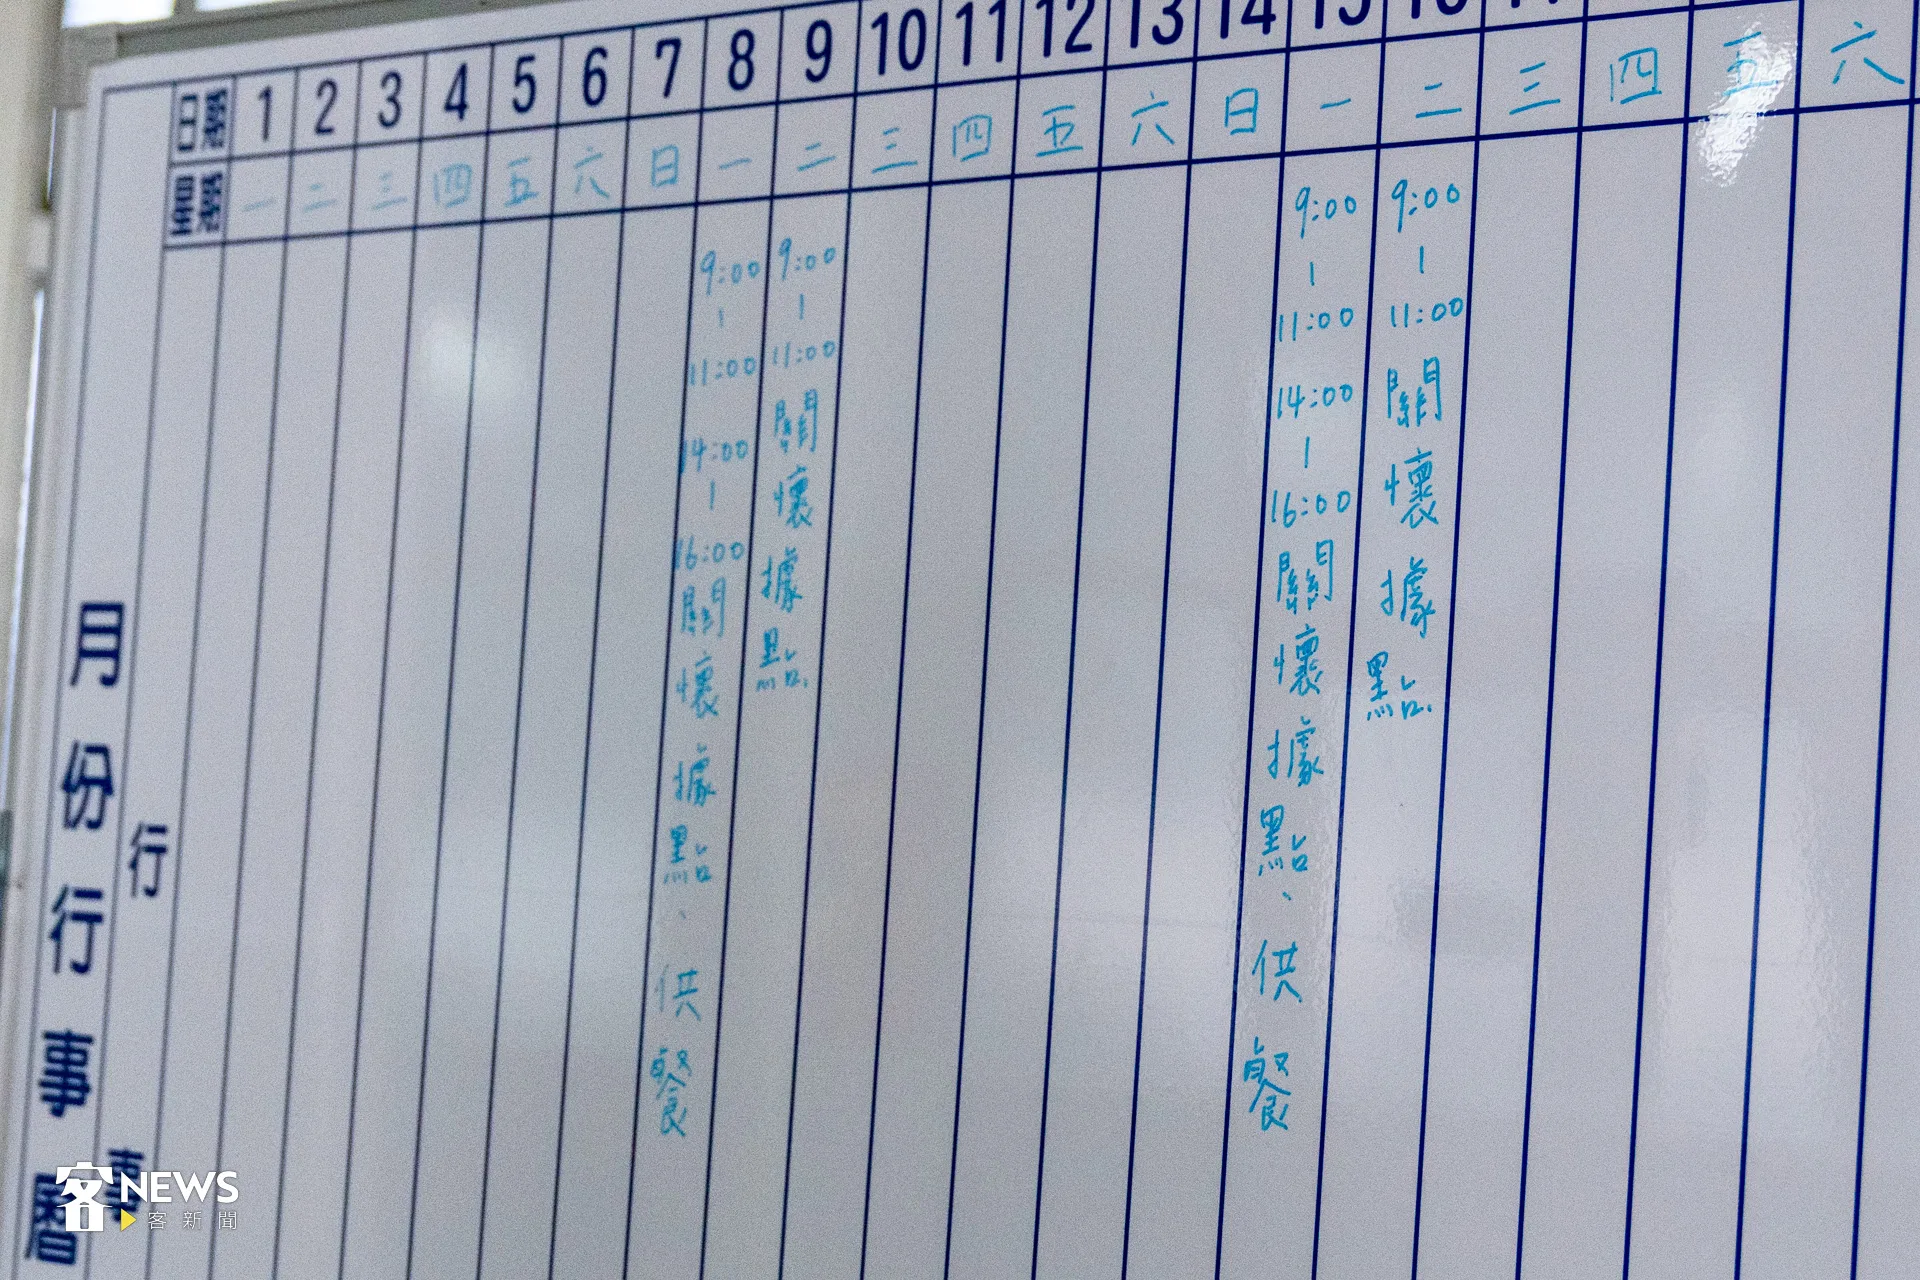 日期 1 2 3 4 5 6 7 8 9 10 11 12 13 14 15 16
星期 一 二 三 四 五 六 日 一 二 三 四 五 六 日 一 二 三 四 五 六
9:00-11:00
14:00-16:00
關懷據點、供餐
9:00-11:00
關懷據點.
9:00-11:00
14:00-16:00
關懷據點、供餐
9:00-11:00
關懷據點.
月份行事曆
行事
客NEWS
客新聞